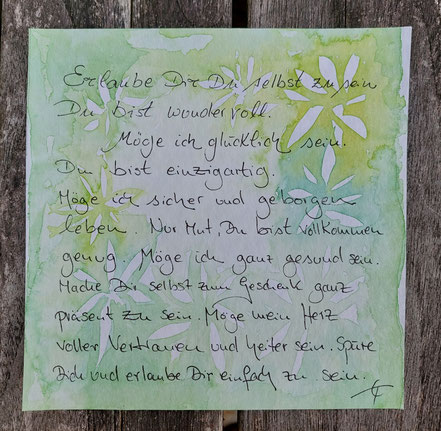 Erlaube Dir Du selbst zu sein
Du bist wundervoll.
Möge ich glücklich sein.
Du bist einzigartig.
Möge ich sicher und geborgen
leben. Nur Mut, Du bist vollkommen
genug. Möge ich ganz gesund sein.
Mache Dir selbst zum Geschenk ganz
präsent zu sein. Möge mein Herz
voller Vertrauen und heiter sein. Spüre
Dich und erlaube Dir einfach zu sein.